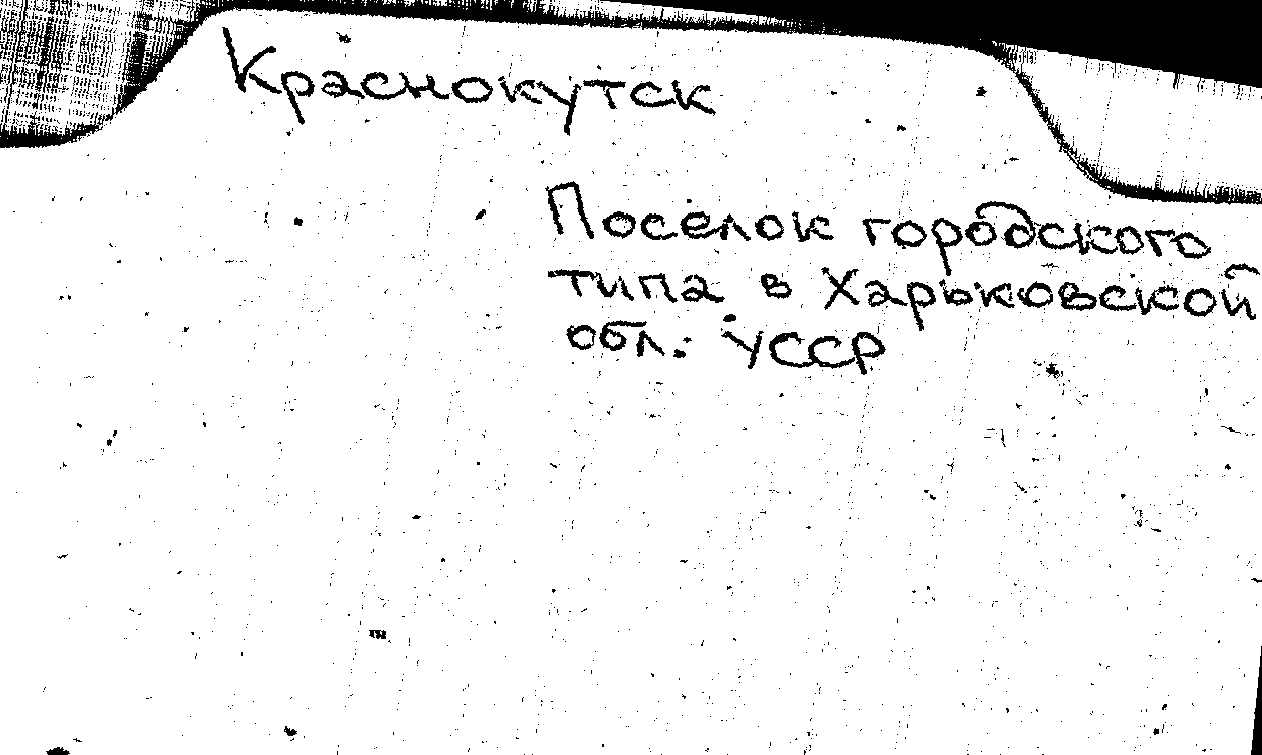 Краснокутск
Поселок городского
типа в Харьковской
обл. УССР